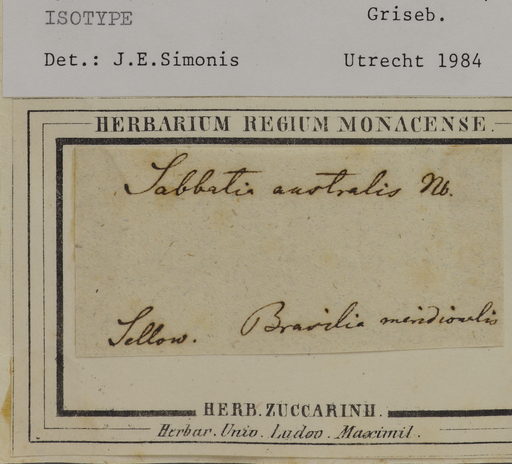 ISOTYPE Griseb.
Det.: J.E.Simonis Utrecht 1984
HERBARIUM REGIUM MONACENSE.
Sabbatia australis Nb.
Sellow. Brasilia meridionalis
HERB. ZUCCARINII.
Herbar. Univ. Ludov. Maximil.